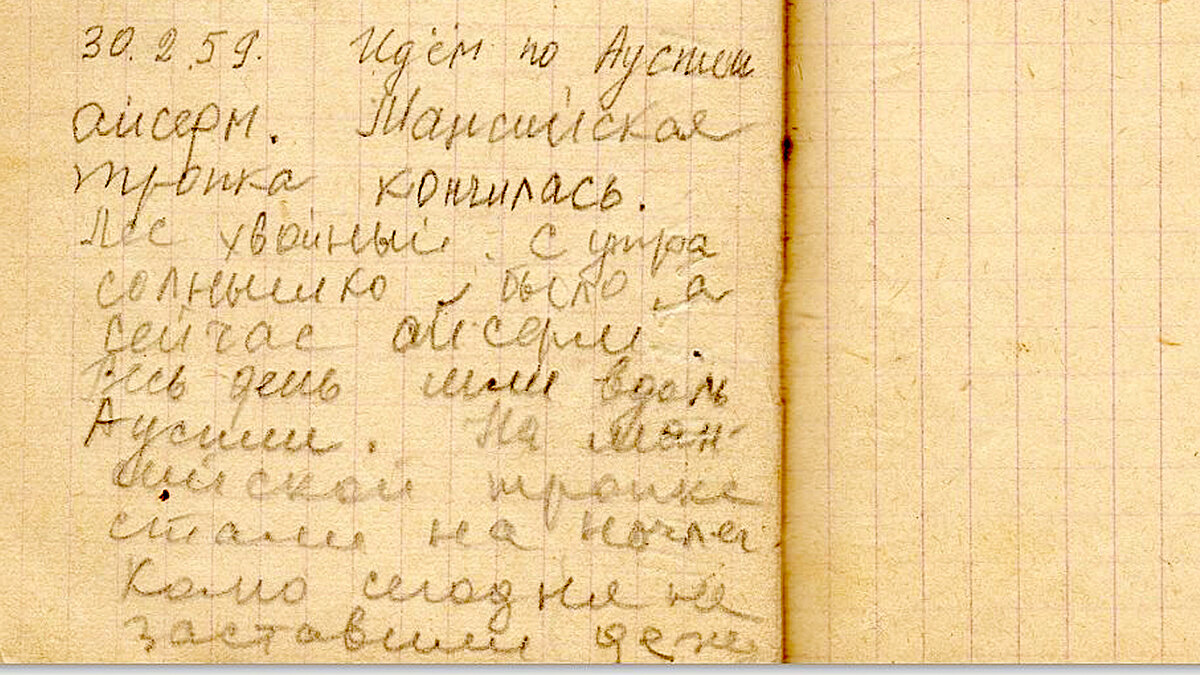 30.2.59. Идём по Ауспии
айсерм. Мансийская
тропка кончилась.
Лес хвойный. С утра
солнышко было, а
сейчас айсерм.
Весь день шли вдоль
Ауспии. На ман-
сийской тропке
стали на ночлег.
сегодня не
заставили деж